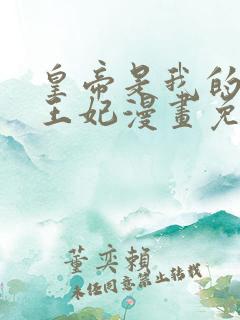 皇帝是我的
王妃漫畫免
董奕賴
未经同意禁止转载